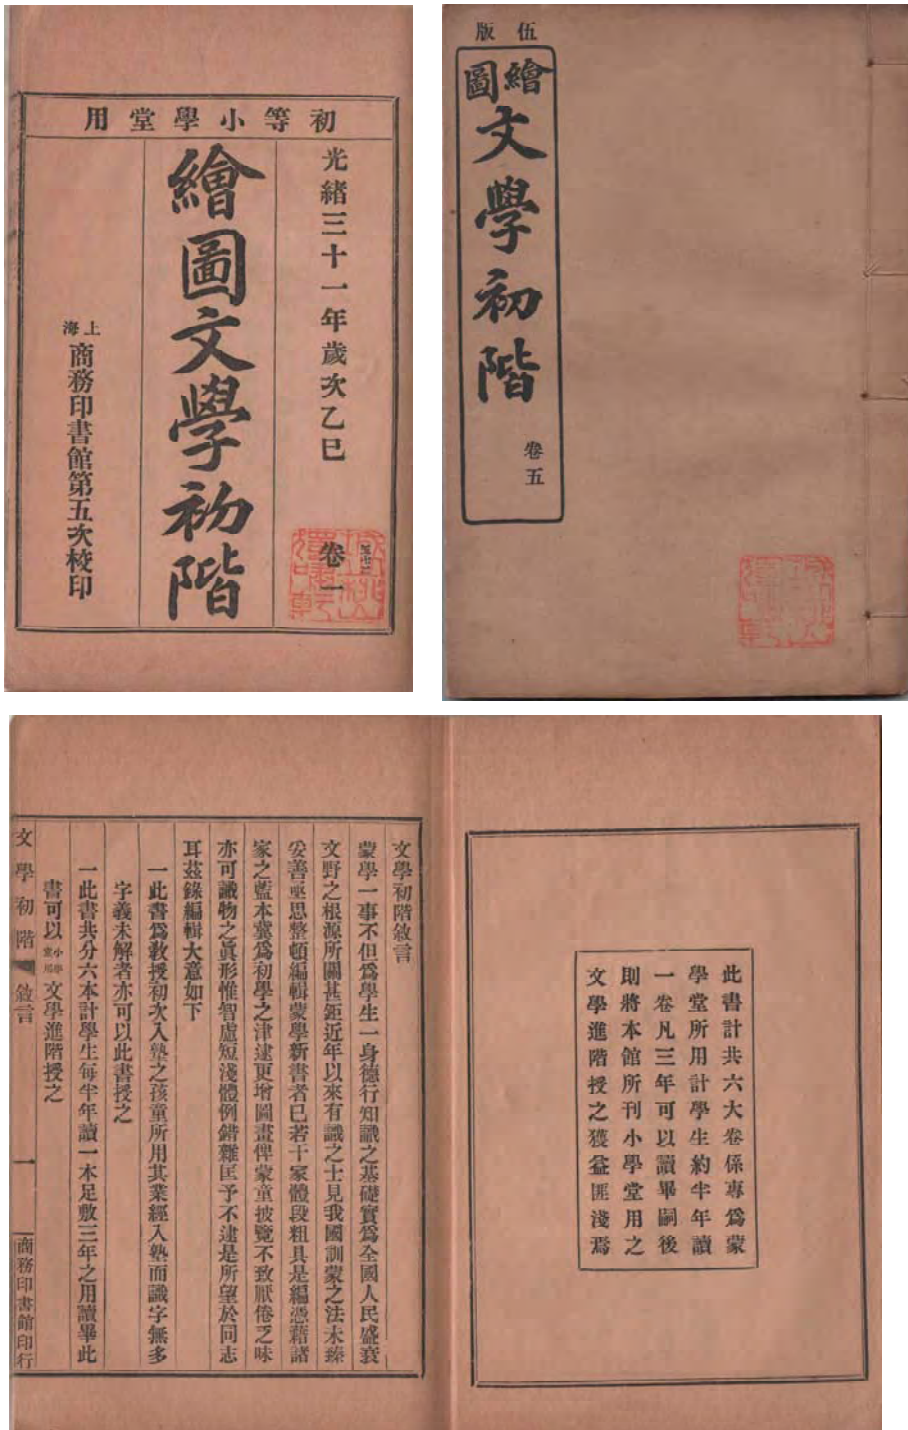 初等小學堂用
光緒三十一年歲次乙巳
卷一
繪圖文學初階
上海
商務印書館第五次校印
伍版
繪圖
文學初階
卷五
此書計共六大卷係專爲蒙
學堂所用計學生約半年讀
一卷凡三年可以讀畢嗣後
則將本館所刊小學堂用之
文學進階授之獲益匪淺焉
文學初階敘言
蒙學一事不但爲學生一身德行知識之基礎實爲全國人民盛衰
文野之根源所關甚鉅近年以來有識之士見我國訓蒙之法未臻
妥善亟思整頓編輯蒙學新書者已若干家體段粗具是編憑藉諸
家之藍本冀爲初學之津逮更增圖畫俾蒙童披覽不致厭倦乏味
亦可識物之眞形惟智慮短淺體例錯雜匡予不逮是所望於同志
耳茲錄編輯大意如下
一此書爲敎授初次入塾之孩童所用其業經入塾而識字無多
字義未解者亦可以此書授之
一此書共分六本計學生每半年讀一本足敷三年之用讀畢此
書可以小學堂用文學進階授之
文學初階 敘言 一 商務印書館印行